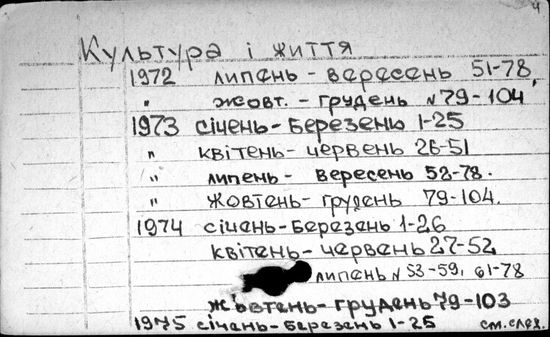 4
Культура і життя
1972 липень - вересень 51-78,
" жовт. - грудень №79-104
1973 січень-березень 1-25
" квітень-червень 26-51
" липень - вересень 52-78.
" жовтень-грудень 79-104.
1974 січень-березень 1-26
квітень-червень 27-52
липень № 53-59, 61-78
жовтень-грудень 79-103
1975 січень-березень 1-25 см.след.